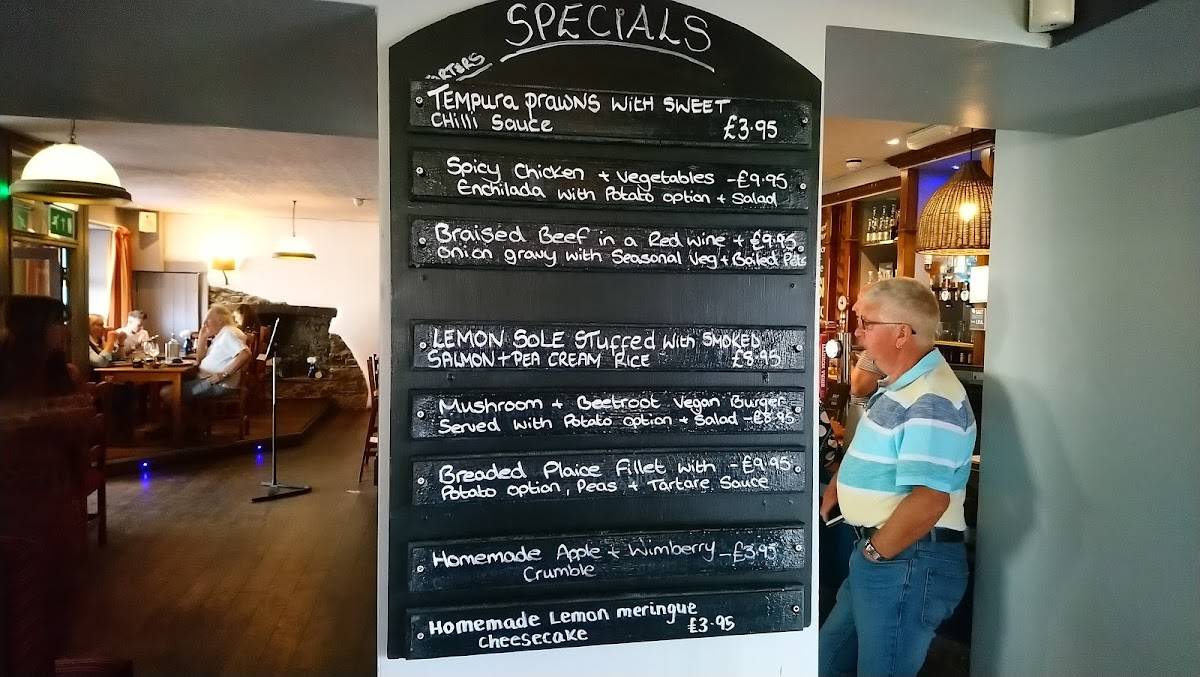 SPECIALS
TEMPURA PRAWNS WITH SWEET
CHILLI SAUCE £3.95
Spicy Chicken + Vegetables - £9.95
Enchilada with Potato option + Salad
Braised Beef in a Red wine + £9.95
onion gravy with Seasonal Veg + Boiled Pots
LEMON SOLE STUFFED WITH SMOKED
SALMON + PEA CREAM RICE £8.95
Mushroom + Beetroot Vegan Burger
Served with Potato option + Salad - £8.95
Breaded Plaice Fillet with - £9.95
Potato option, Peas + Tartare Sauce
Homemade Apple + Wimberry - £3.95
Crumble
Homemade Lemon meringue
cheesecake £3.95